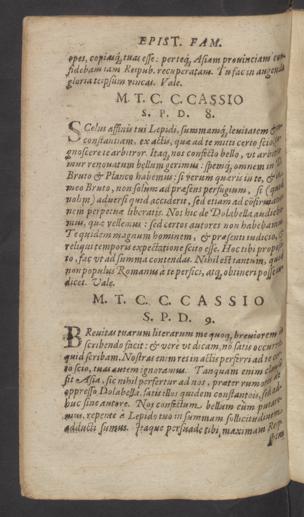 EPIST. FAM.
opes, copiasq́; tuas esse: perteq́; Asiam prouinciam con
fidebam iam Reipub. recuperatam. Tu fac in augenda
gloria te ipsum vincas. Vale.
M. T. C. C. CASSIO
S. P. D. 8.
SCelus affinis tui Lepidi, summamq́; leuitatem &
constantiam, ex actis, quæ ad te mitti certo scio,
gnoscere te arbitror. Itaq; nos confecto bello, vt arbitra
mur renouatum bellum gerimus: spemq́; omnem in D.
Bruto & Planco habemus: si verum quæris in te, & in
meo Bruto, non solùm ad præsens perfugium, si (quod
nolim) aduersi quid acciderit, sed etiam ad confirmatio
nem perpetuæ libertatis. Nos hic de Dolabella audieba
mus, quæ vellemus: sed certos autores non habebamus.
Te quidem magnum hominem, & præsenti iudicio, &
reliqui temporis expectatione scito esse. Hoc tibi proposi
to, fac vt ad summa contendas. Nihil est tantum, quod
non populus Romanus à te persici, atq; obtineri posse iu
dicet. Vale.
M. T. C. C. CASSIO
S. P. D. 9.
BReuitas tuarum literarum me quoq; breuiorem in
scribendo facit: & verè vt dicam, no satis occurrit
quid scribam. Nostras enim res in actis perferri ad te cer
to scio, tuas autem ignoramus. Tanquam enim clausa
sit Asia, sic nihil perfertur ad nos, præter rumores de
oppresso Dolabella, satis illos quidem constantois, sed ad
huc sine autore. Nos confectum bellum cùm putare-
mus, repentè à Lepido tuo in summam sollicitudinem
adducti sumus. Itaque persuade tibi, maximam Reip.